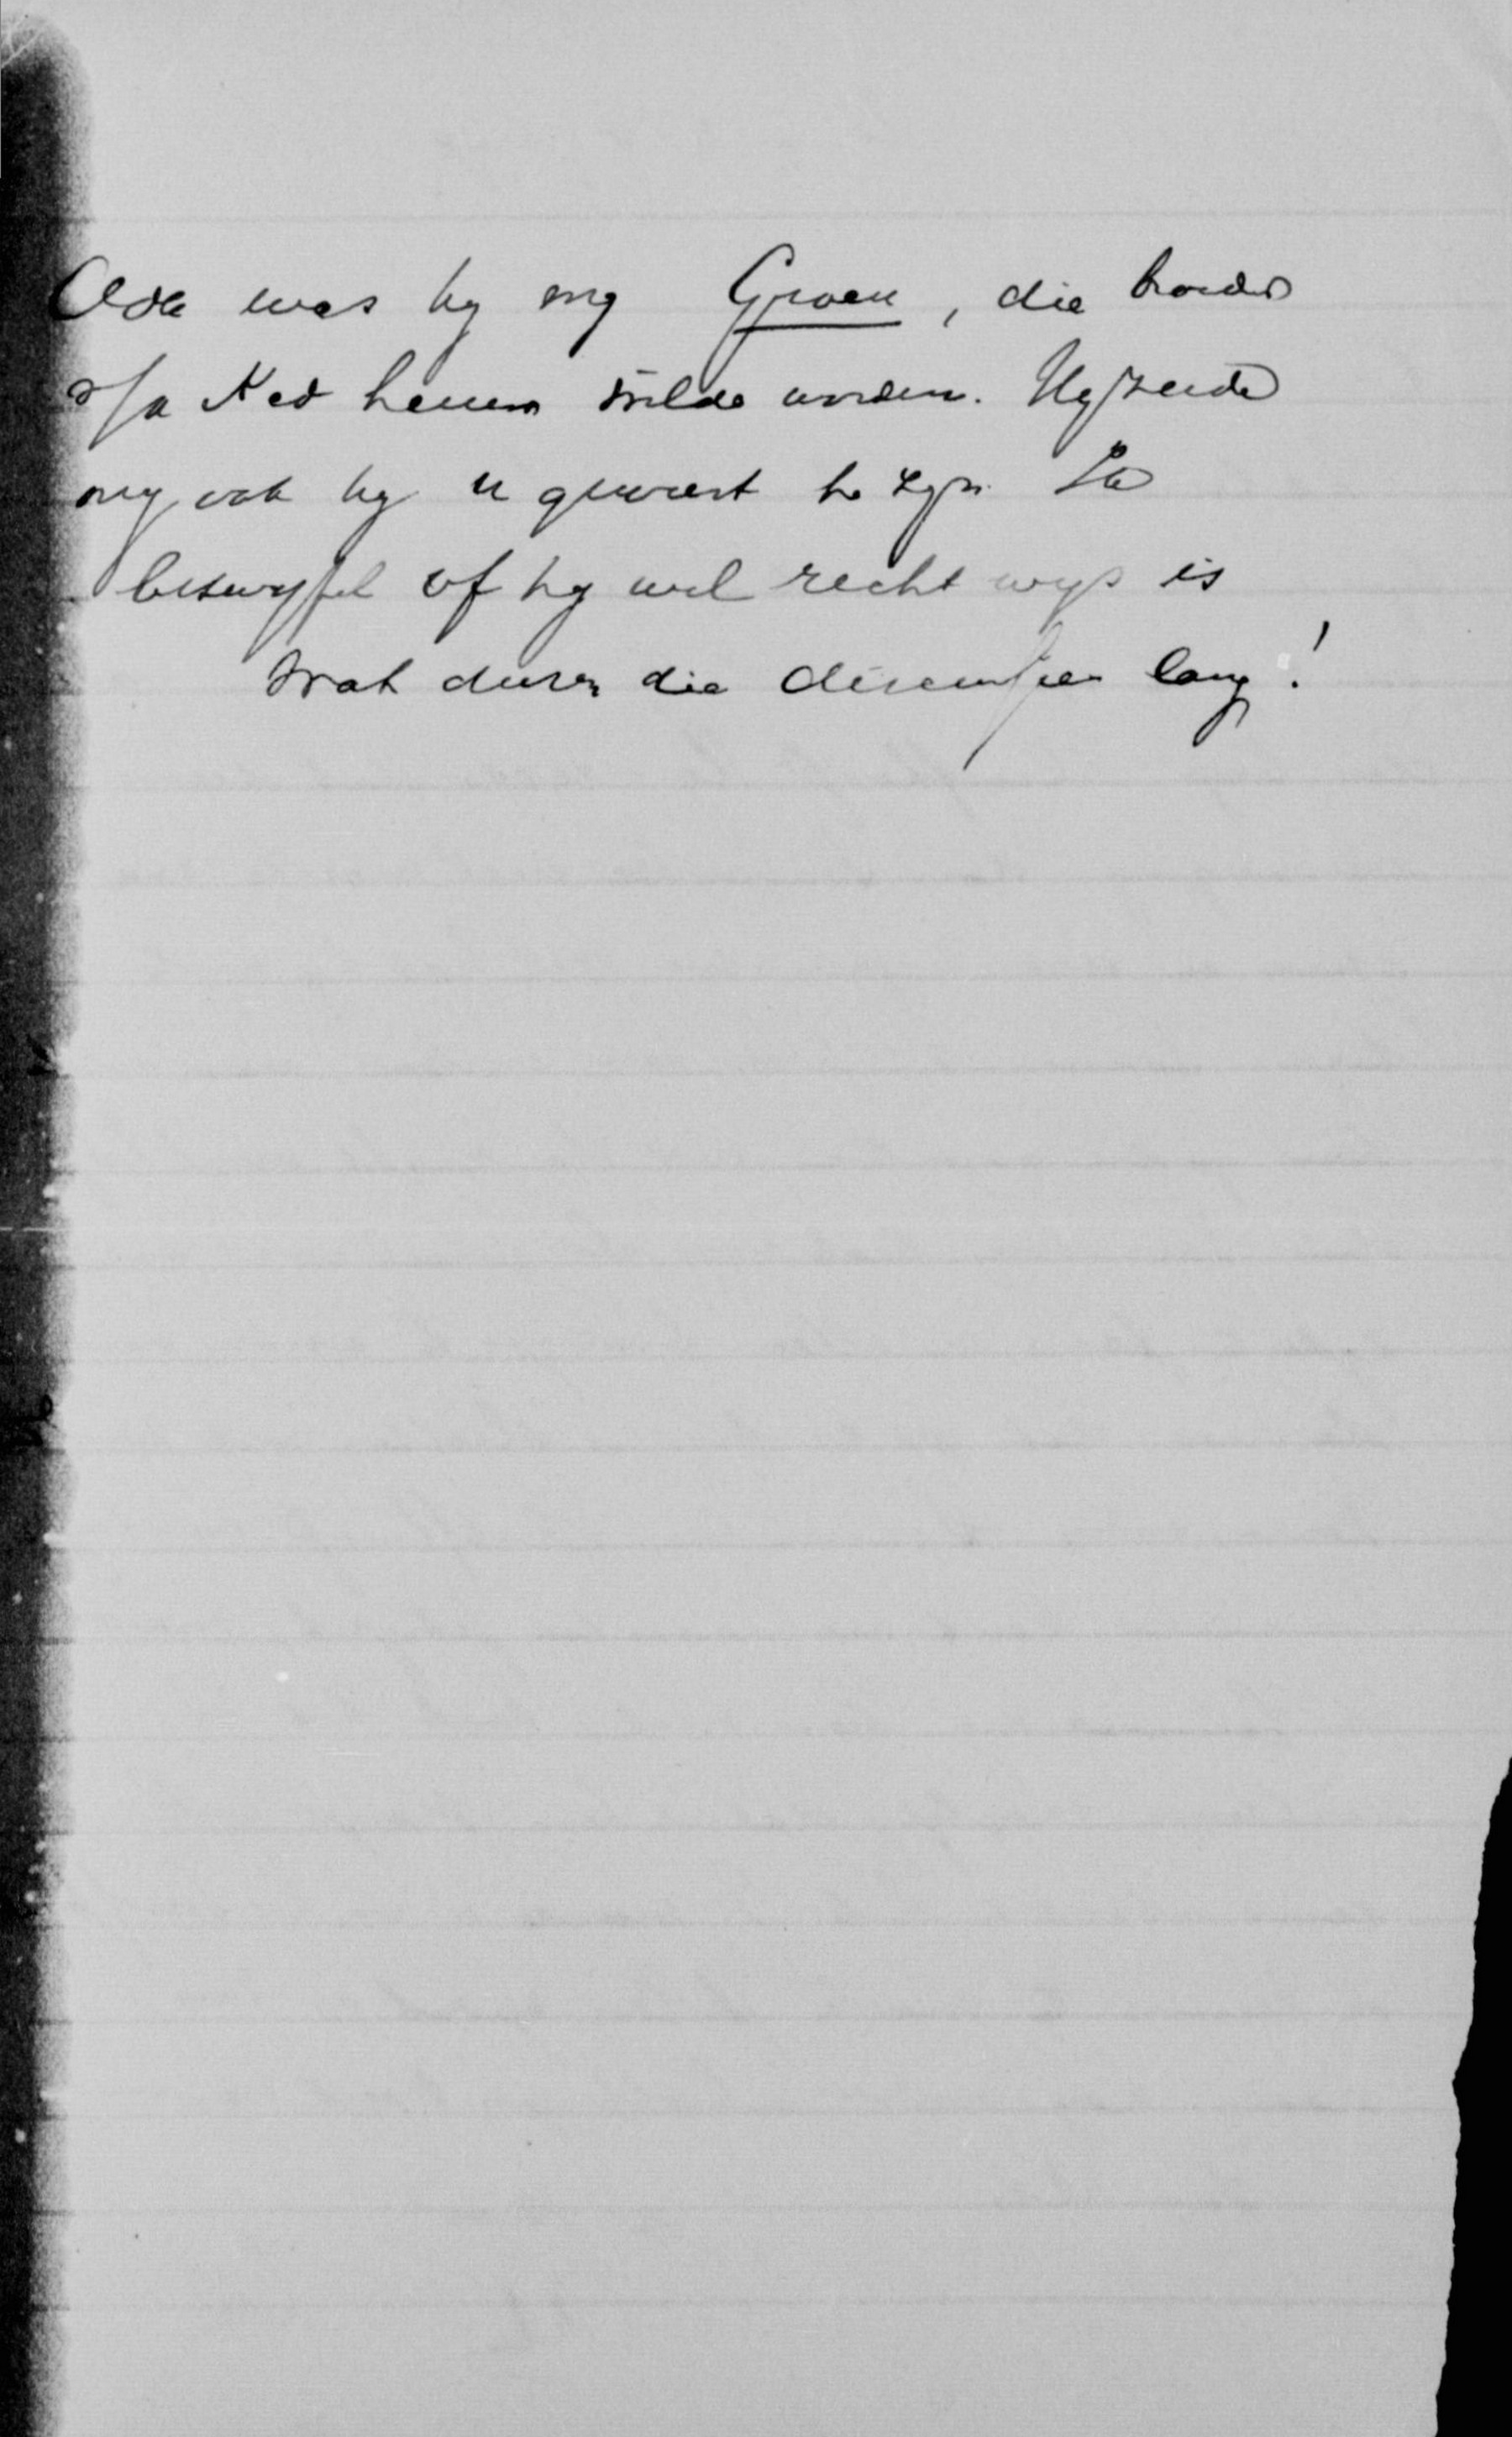 Ook was by my Groen, die
o/a Ned wilde worden. Hy zeide
my ook by u geweest te zyn. Ik
betwyfel of hy wel recht wys is
Wat duren die discussies lang!